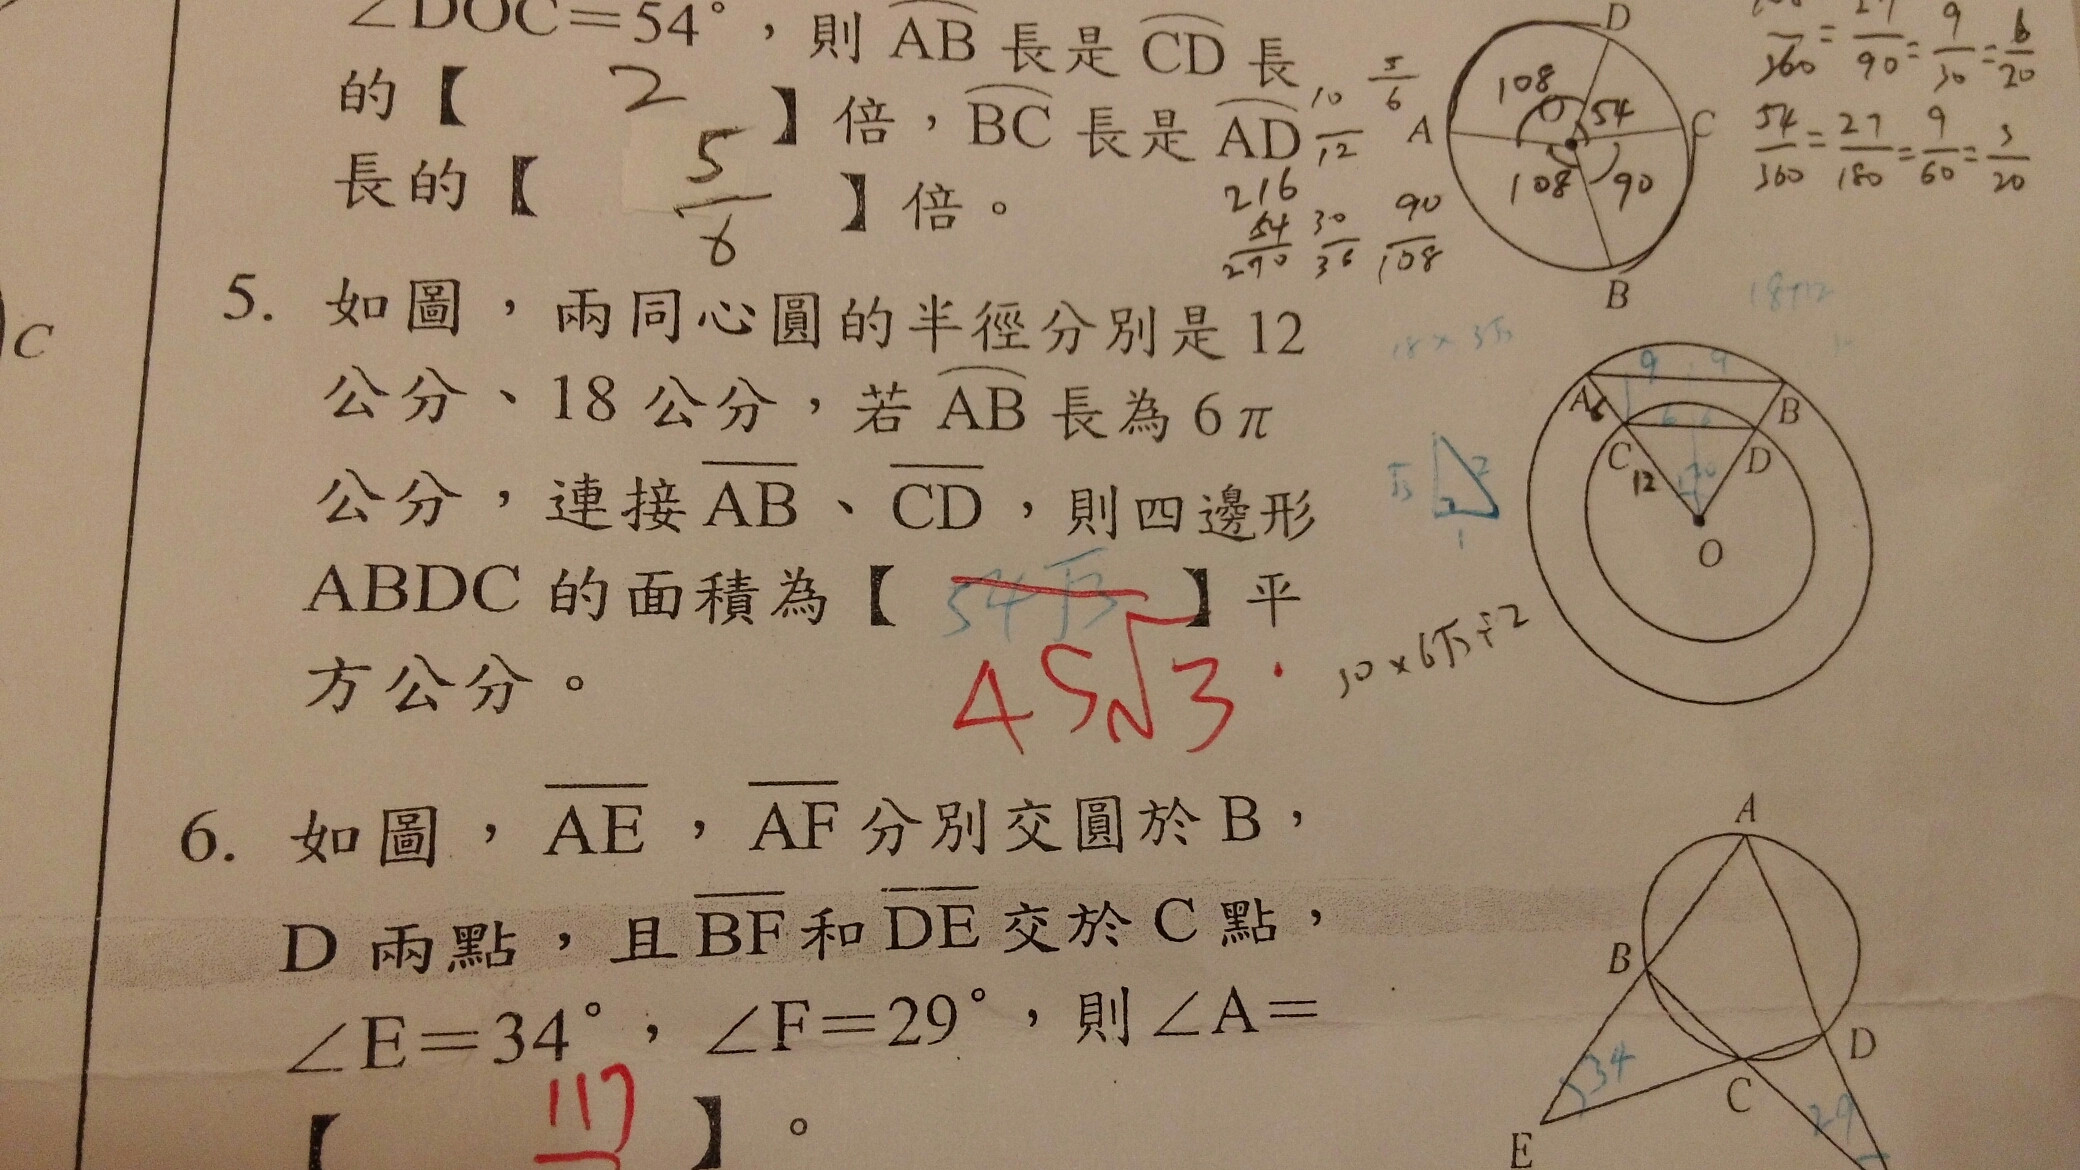 ∠DOC=54°，則 AB 長是 CD 長
的【 2 】倍，BC 長是 AD
長的【 5/6 】倍。
10/12
5/6
216
54/270
30/36
90/108
D
A
C
B
O
108
54
108
90
/360 = 27/90 = 9/30 = 6/20
54/360 = 27/180 = 9/60 = 3/20
5. 如圖，兩同心圓的半徑分別是 12
公分、18 公分，若 AB 長為 6π
公分，連接 AB、CD，則四邊形
ABDC 的面積為【 54√3 】平
方公分。
45√3
18×3√3
18+12
9 9
A
B
6
6
C
D
12
O
√3
2
1
30×6√3÷2
6. 如圖，AE，AF 分別交圓於 B，
D 兩點，且 BF 和 DE 交於 C 點，
∠E=34°，∠F=29°，則∠A=
【 117 】。
A
B
D
C
E
34
29
C